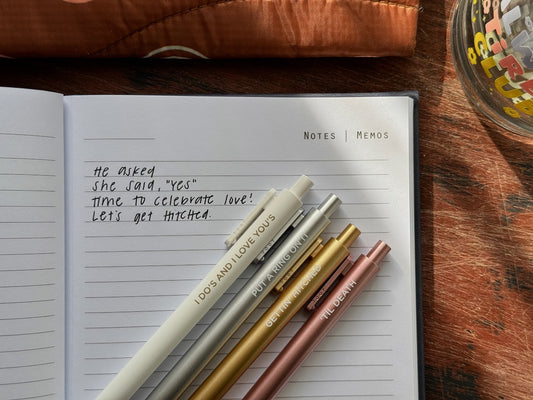 Notes | Memos
He asked
she said, "Yes"
time to celebrate love!
Let's get Hitched.
I DO'S AND I LOVE YOU'S
PUT A RING ON IT
GETTIN' HITCHED
'TIL DEATH